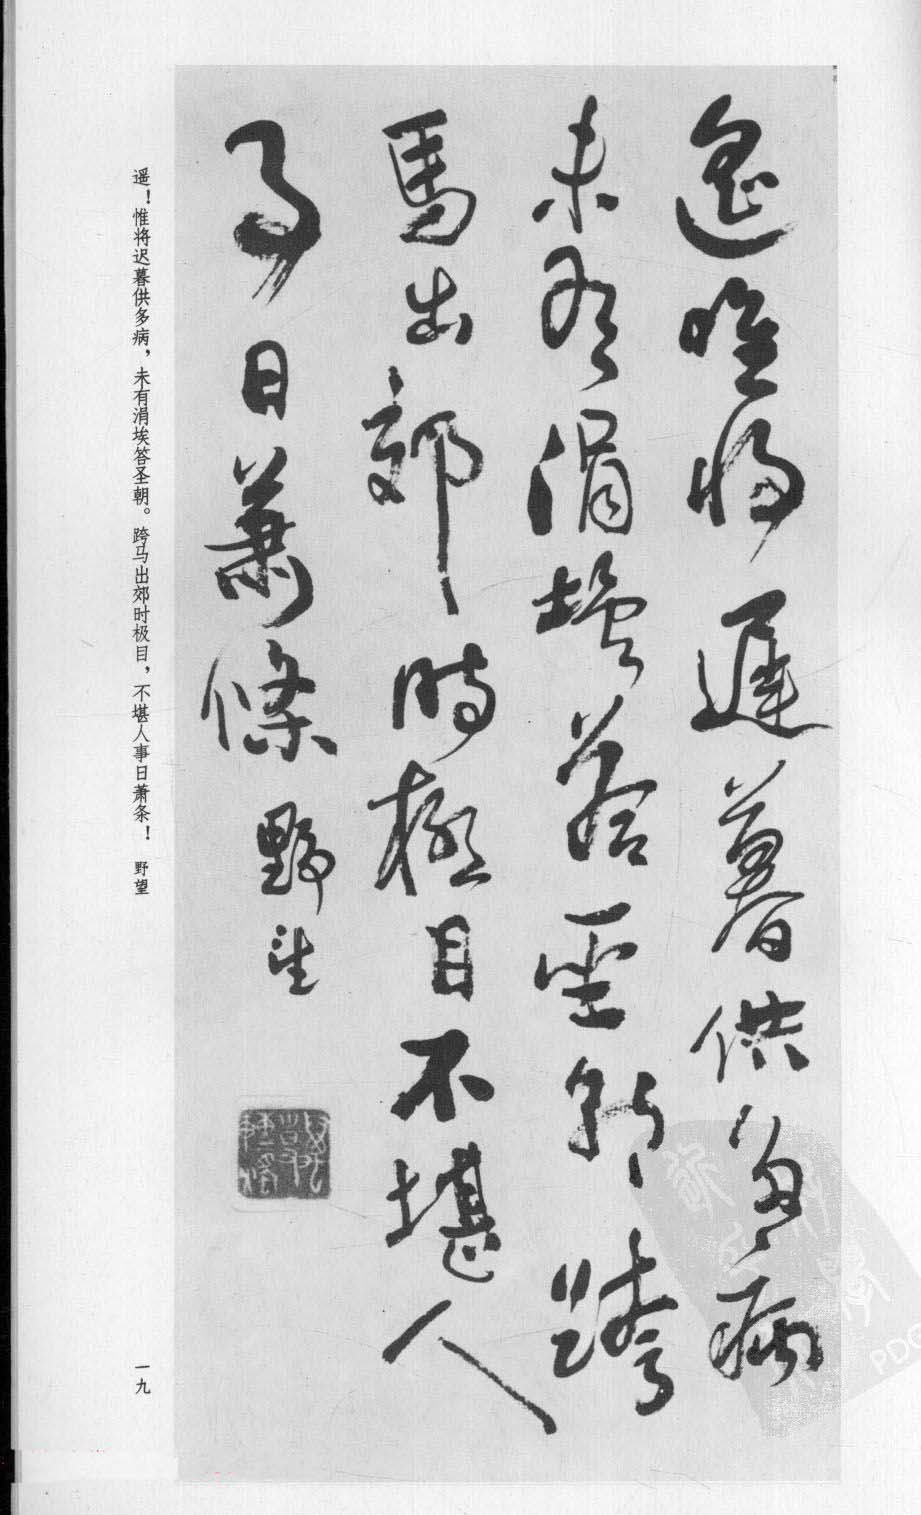 遥唯将遲暮供多病
未有涓埃答聖朝跨
馬出郊時極目不堪人
事日蕭條 野望
遥！惟将迟暮供多病，未有涓埃答圣朝。跨马出郊时极目，不堪人事日萧条！ 野望
一九